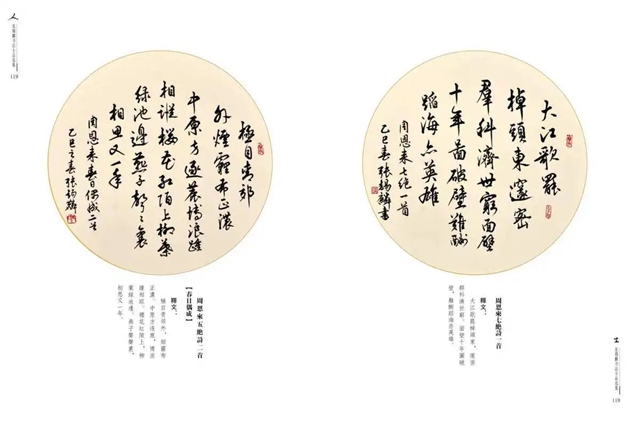 大江歌罷
掉頭東邃密
羣科濟世窮面壁
十年圖破壁難酬
蹈海亦英雄
周恩來七絕一首
乙巳春張錫麟書
周恩來七絕詩一首
釋文：
大江歌罷掉頭東，邃密
群科濟世窮。面壁十年圖破
壁，難酬蹈海亦英雄。
119
極目青郊
外煙霾布正濃
中原方逐鹿博浪踵
相櫻花紅陌上柳葉
綠池邊燕子聲聲裏
相思又一年
周恩來春日偶成二首
乙巳之春張錫麟
周恩來五絕詩二首
【春日偶成】
釋文：
極目青郊外，烟霾布
正濃。中原方逐鹿，博浪
踵相。櫻花紅陌上，柳
葉綠池邊。燕子聲聲裏，
相思又一年。
119